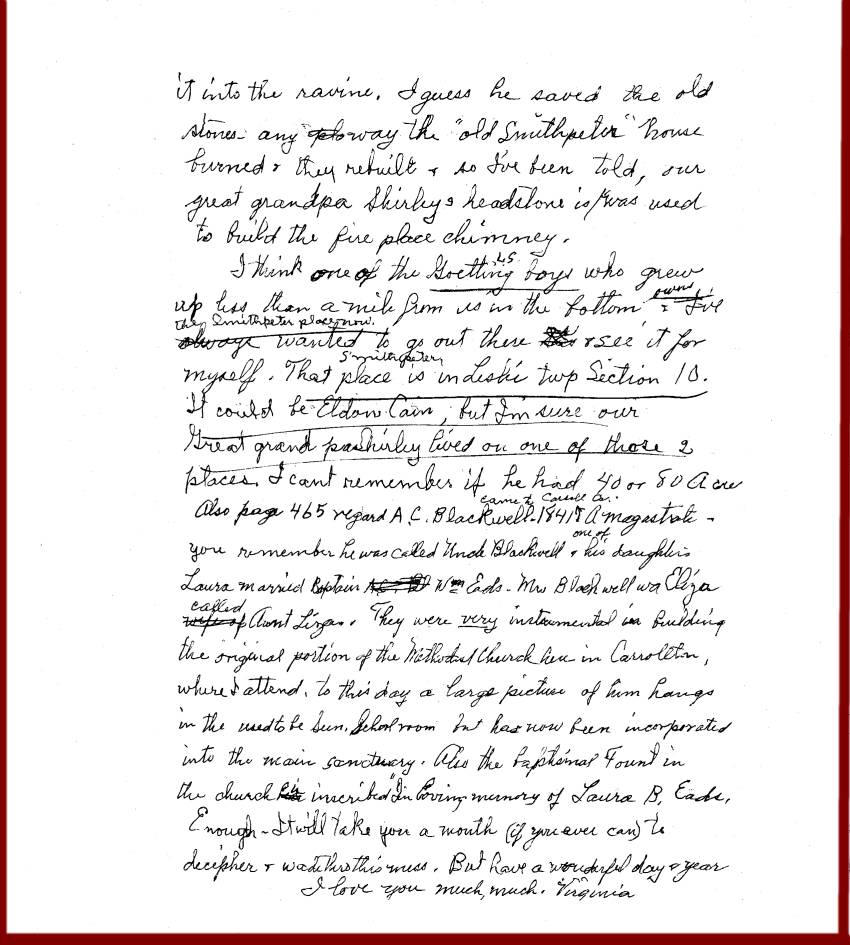 it into the ravine. I guess he saved the old
stones - any way the "old Smithpeter" house
burned & they rebuilt & so I've been told, our
great grandpa Shirleys headstone is/was used
to build the fire place chimney.
I think one of the Goetting boys who grew
up less than a mile from us in the bottom owns I've
the Smithpeter place now.
always wanted to go out there & see it for
Smithpeter
myself. That place is in Leslie twp Section 10.
It could be Eldon Cain, but I'm sure our
Great grand pa Shirley lived on one of those 2
places. I cant remember if he had 40 or 80 Acre
came to Carroll Co.
Also page 465 regard A.C. Blackwell - 1841 A magastrate -
one of
you remember he was called Uncle Blackwell & his daughters
Laura married Captain Wm Eads - Mrs Blackwell wa Eliza
called
Aunt Liza. They were very instrumental in building
the original portion of the Methodist Church here in Carrollton,
where I attend, to this day a large picture of him hangs
in the used to be Sun. School room but has now been incorporated
into the main sanctuary. Also the baptismal Fount in
the church is inscribed "In Loving memory of Laura B. Eads.
Enough - It will take you a month (if you ever can) to
decipher & wade thro this mess. But have a wonderful day & year
I love you much, much. Virginia